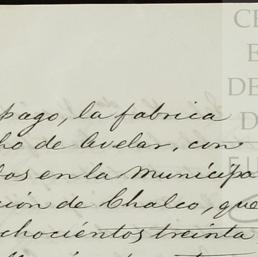 pago, la fabrica
ho de Avelar, con
os en la Municipa
ción de Chalco, que
chocientos treinta
CE
E
DE
D